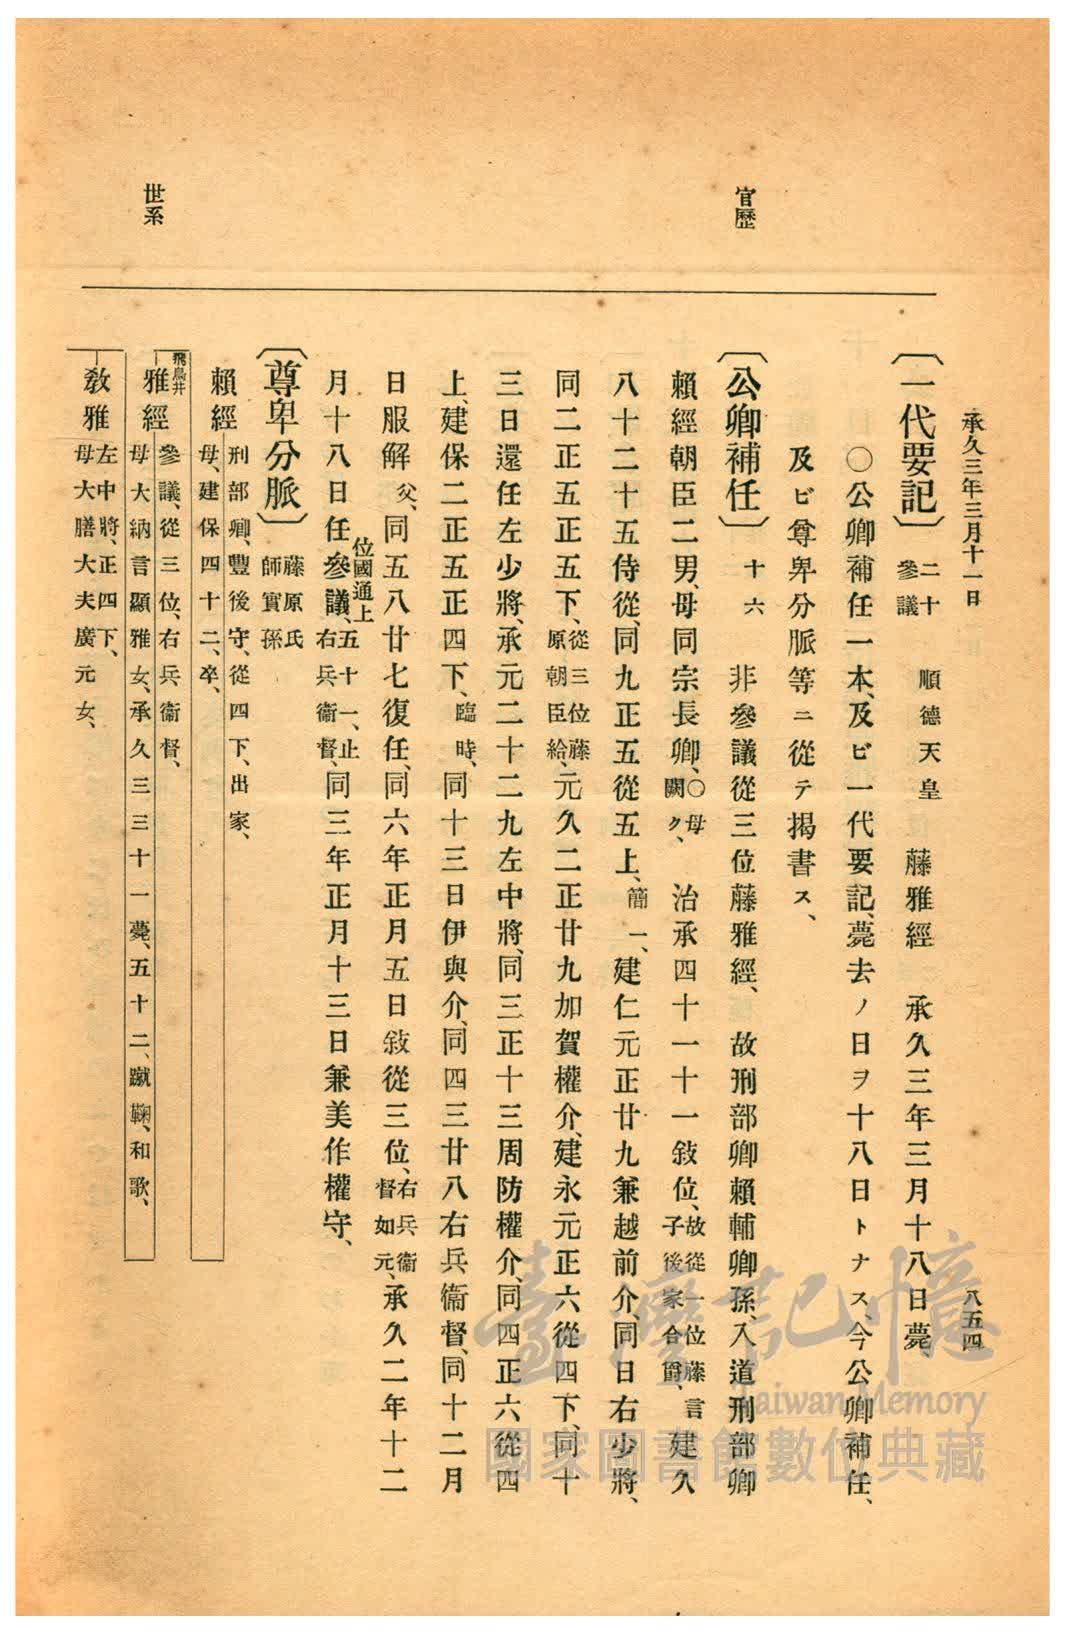 承久三年三月十一日
八五四
〔一代要記〕二十 參議 順德天皇 藤雅經 承久三年三月十八日薨、
○公卿補任一本、及ビ一代要記、薨去ノ日ヲ十八日トナス、今公卿補任、
及ビ尊卑分脈等ニ從テ揭書ス、
官歷
〔公卿補任〕十六 非參議從三位藤雅經、故刑部卿賴輔卿孫、入道刑部卿
賴經朝臣二男、母同宗長卿、○母闕ク、治承四十一十一敍位、故從一位藤言子後家合爵、建久
八十二十五侍從、同九正五從五上、簡一、建仁元正廿九兼越前介、同日右少將、
同二正五正五下、從三位藤原朝臣給、元久二正廿九加賀權介、建永元正六從四下、同十
三日還任左少將、承元二十二九左中將、同三正十三周防權介、同四正六從四
上、建保二正五正四下、臨時、同十三日伊與介、同四三廿八右兵衞督、同十二月
日服解、父、同五八廿七復任、同六年正月五日敍從三位、右兵衞督如元、承久二年十二
月十八日任參議、五十一、止右兵衞督、位國通上同三年正月十三日兼美作權守、
世系
〔尊卑分脈〕藤原氏師實孫
賴經 刑部卿、豐後守、從四下、出家、
母、建保四十二、卒、
飛鳥井
雅經 參議、從三位、右兵衞督、
母大納言顯雅女、承久三三十一薨、五十二、蹴鞠、和歌、
敎雅 左中將、正四下、
母大膳大夫廣元女、
臺灣記憶
Taiwan Memory
國家圖書館數位典藏